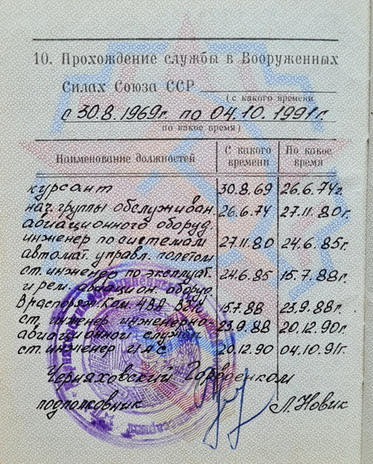 10. Прохождение службы в Вооруженных
Силах Союза ССР
(с какого времени
с 30.8.1969г. по 04.10.1991г.
по какое время)
Наименование должностей
С какого времени
По какое время
курсант 30.8.69 26.6.74г.
нач. группы обслуживан. 26.6.74 27.11.80г.
авиационного оборуд.
инженер по системам 27.11.80 24.6.85г.
автомат. управл. полетом
ст. инженер по эксплуат. 24.6.85 15.7.88г.
и рем. авиацион. оборуд.
В распоряж. Ком. 23.9.88г.
ст. инженер инженерно- 23.9.88 20.12.90г.
авиационной службы
ст. инженер ИАС 20.12.90 04.10.91г.
Черняховский
подполковник Л. Новик